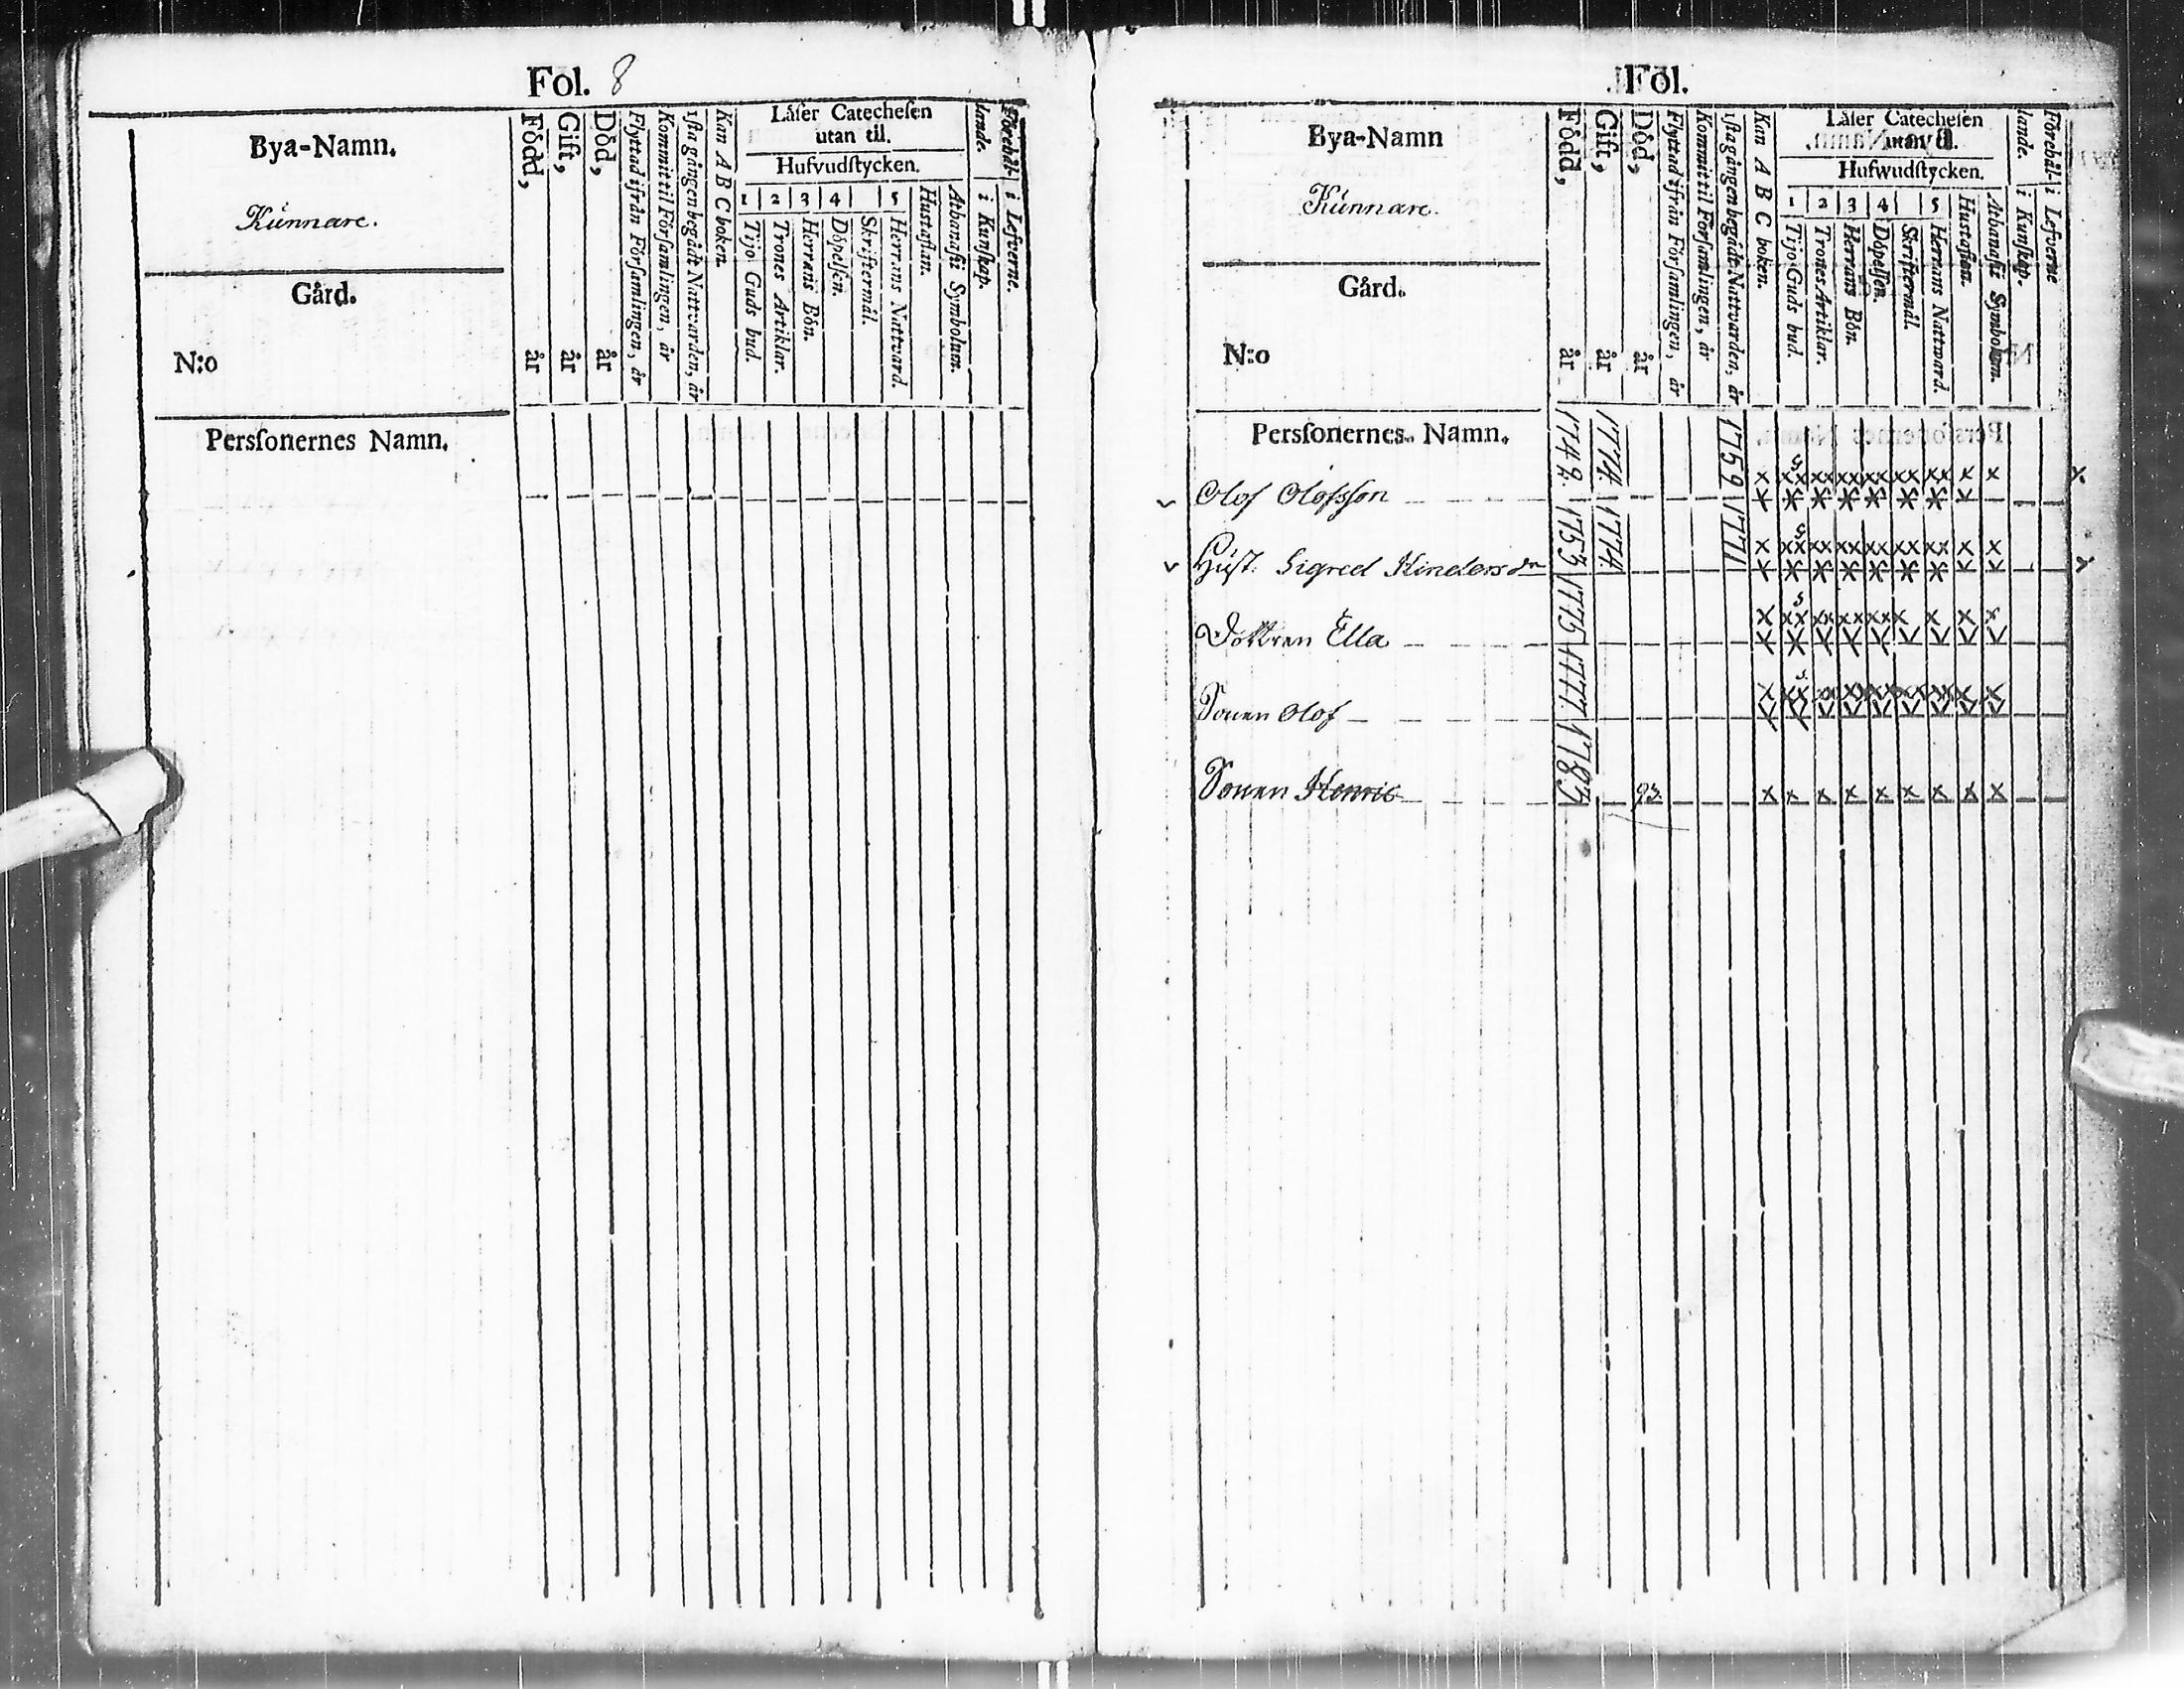 Fol. 8
Bya-Namn.
Kunnare.
Gård.
N:o
Perssonernes Namn.
Född, år
Gift, år
Död, år
Flyttad ifrån Församlingen, år
Kommit til Församlingen, år
1sta gången begådt Nattvarden, år
Kan A B C boken.
Läser Catechesen
utan til.
Hufvudstycken.
1 2 3 4 5
Tijo Guds bud.
Trones Artiklar.
Herrans Bön.
Döpelsen.
Skriftermål.
Herrans Nattvard.
Hustaflan.
Athanasii Symbolum.
Förehållande.
i Kunskap.
i Lefverne.
Fol.
Bya-Namn
Kunnare.
Gård.
N:o
Perssonernes Namn.
Född, år
Gift, år
Död, år
Flyttad ifrån Församlingen, år
Kommit til Församlingen, år
1sta gången begådt Nattvarden, år
Kan A B C boken.
Läser Catechesen
Hufwudstycken.
1 2 3 4 5
Tijo Guds bud.
Trones Artiklar.
Herrans Bön.
Döpelsen.
Skriftermål.
Herrans Nattward.
Hustaflan.
Athanasii Symbolum.
Förehållande.
i Kunskap.
i Lefverne
Olof Olofsson 1742. 1774. 1759
Hust. Sigred Hindersdr 1753 1774 1771
Dottren Ella 1775
Sonen Olof 1777
Sonen Henric 1783 93.